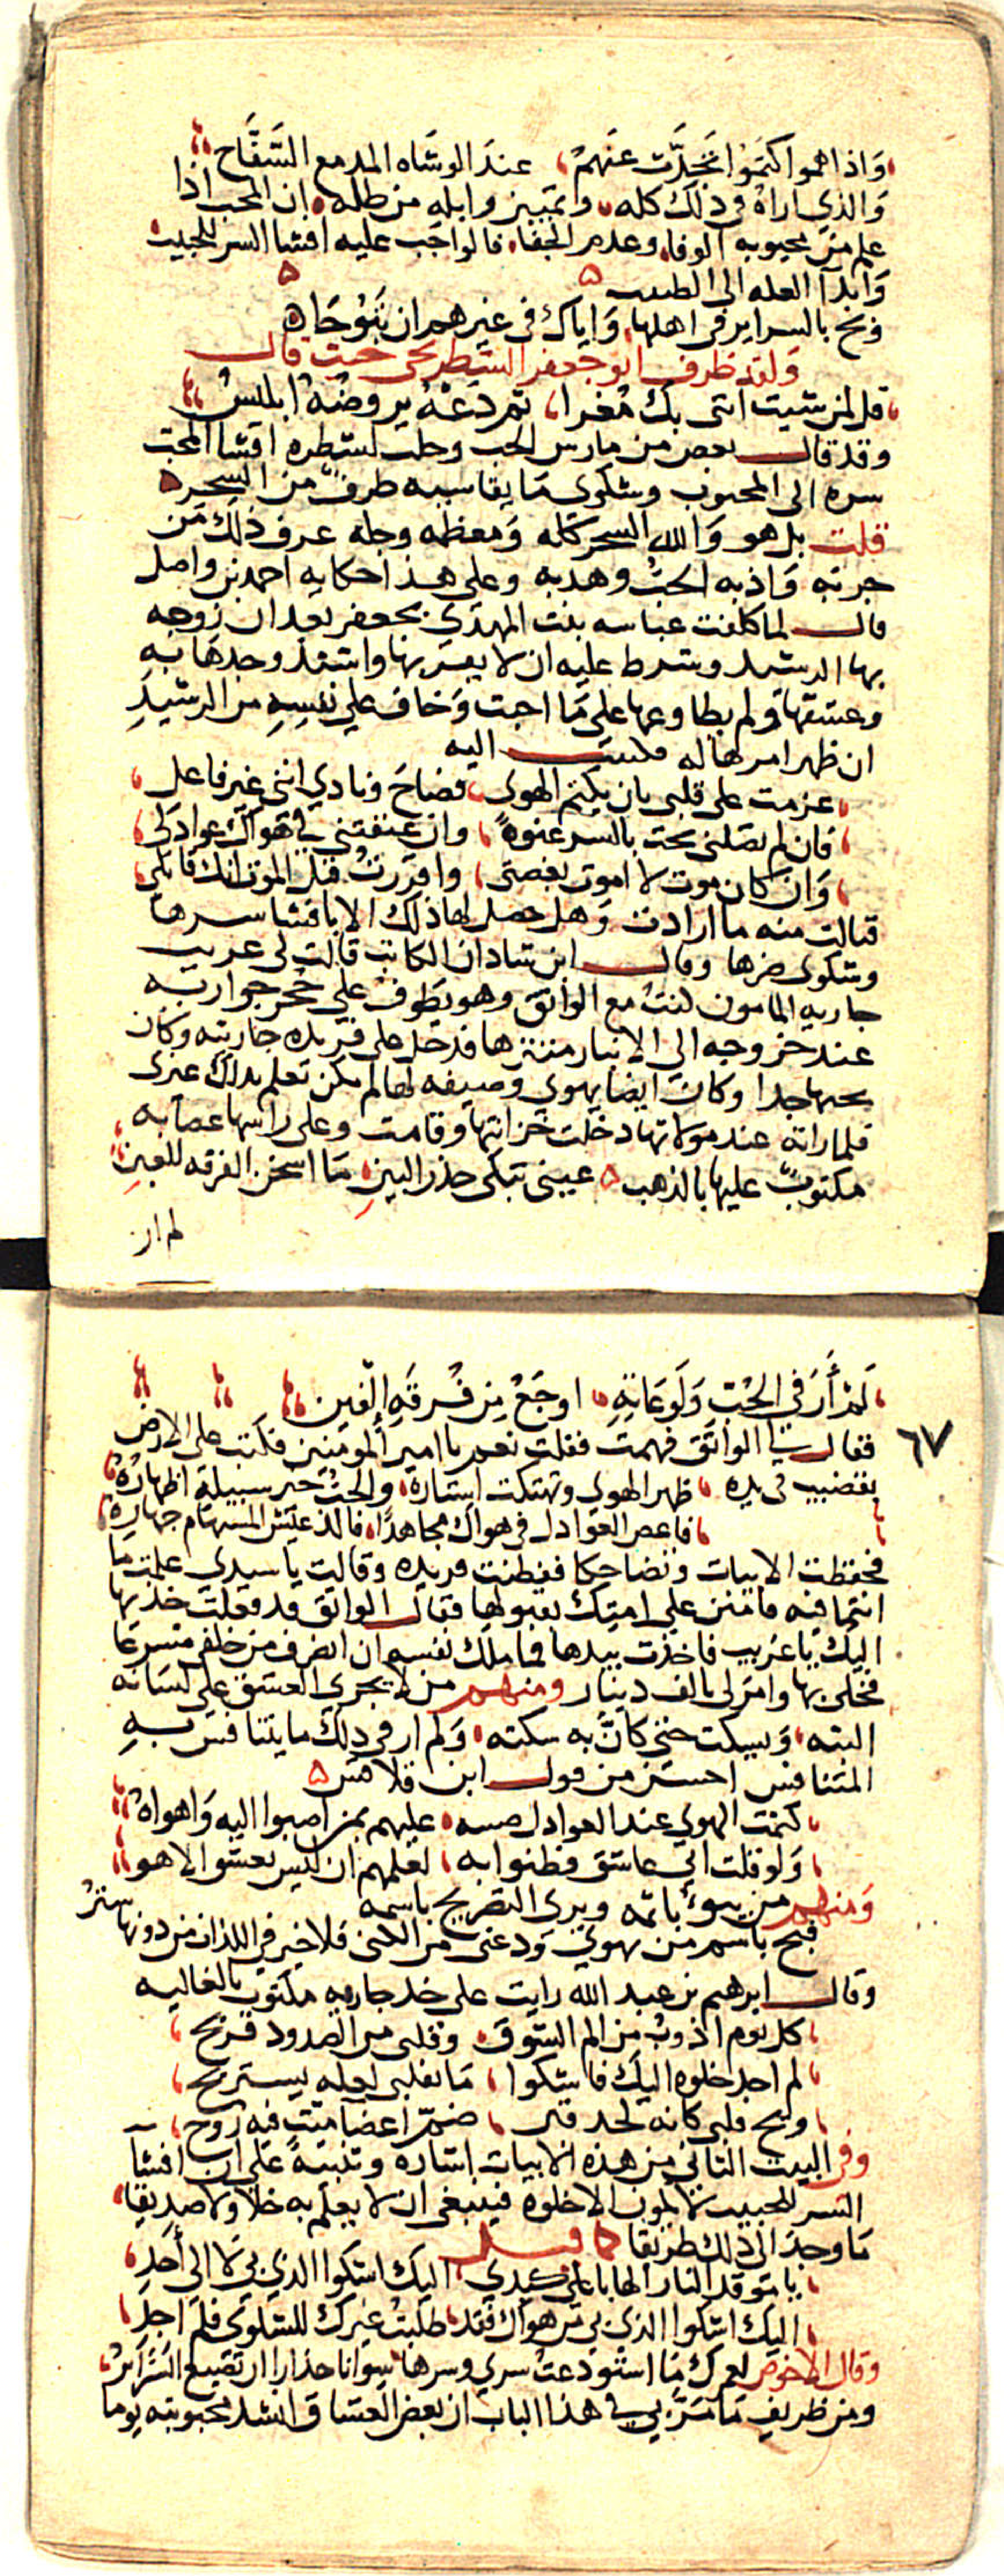 وَاذا هموا كتمَوا تحَدَّت عنهمْ عندَ الوشاه المدمع السَّفَّاح
وَالذي اراهُ في ذلك كله وتمييز وابله من طله ان المحب اذا
علم من محبوبه الوفا وعدم الجفا فالواجب عليه افشا السر للحبيب
وَابدآ العله الى الطبيب
وبح بالسراير في اهلها وَاياك في غيرهم ان تبوحَا
وَلقد ظرف ابو جعفر الشطرنجى حيث قال
قل لمن شيت انى بك مُغرا ثم دَعْهُ يروضُهُ ابليسُ
وقد قال بعض من مارس الحب وحلب اشطره افشا المحب
سره الى المحبوب وشكوى مَا يقاسيه طرفٌ من السحر
قلت بل هو وَالله السحر كله وَمعظمه وجله عرف ذلك مَن
جربه وَاذبه الحبُّ وهدبه وعلى هذا حكايه احمد بن واصل
قال لما كلفت عباسه بنت المهدَي بجعفر بعد ان زوجه
بها الرشيد وشرط عليه ان لا يقربها واشتد وجدهَا به
وعشقهَا ولم يطاوعها على مَا احبت وَخاف على نفسِهِ من الرشيدِ
ان ظهر امرها له فكتبت اليه
عزمت على قلبي بان يكتم الهوى فصَاحَ ونادي انني غير فاعل
فان لم تصلنى بحت بالسر عنوهً وان عنفتني في هَوَاك عواذلى
وَان كان موت لا اموت بغصتى وَاقررتُ قبل الموت انك قاتلى
فنالت منه ما ارادت وَهل حصل لها ذلك الا بافشا سرها
وشكوى ضرها وقال ابن شاذان الكاتب قالت لى عريب
جاريه المامون كنتُ مع الواثق وهو يطوف على حُجَر جواريه
عند خروجه الى الانبار متنزها فدخل على فريده جاريته وكان
يحبها جدا وكان ايضا يهوي وصيفه لها لم يكن تعلم بذاك غيرى
فلما راته عند مولاتها دخلت خزانتها وقامت وعلى راسها عصابه
مكتوبٌ عليها بالذهب عينى تبكى حذر البينِ مَا اسخن الفرقه للعين
لم ار
لَمْ أَرَ في الحُبّ وَلَوعَاتِهِ اوجَعْ مِن فُرقَهِ الْفين
٦٧
فقال لي الواثق فهمت فقلت نعم يا امير المومنين فكتب على الارض
بقضيب فى يده ظهر الهوى وتهتكت استَارهُ والحبُّ خير سبيلهِ اظهارُهُ
فاعص العوَاذل في هواك مجاهدًا فالذ عيش المستهام جهارهُ
فحفظت الابيات وتضاحكا ففطنت فريده وقالت يا سيدي علمت مَا
انتما فيه فامنن على امتك بقبولها فقال الواثق قد فعلت خذيها
اليك يا عَريب فاخذت بيدها فما ملك نفسه ان انصرف من خلفي مسرعَا
فخلى بها وامر لى بالف دينار ومنهم من لا يجرى العشق على لسَانه
البته وَيسكت حتى كَانَّ به سكته وَلم ار في ذلك ما يتنافس به
المتنافس احسن من قول ابن قلاقس
كتمت الهوي عند العواذل عليهم بمن اصبوا اليه وَاهواهُ
وَلو قلت انى عاشق فطنوا به لعلمهم ان ليس يعشق الا هو
وَمنهم من يبوءُ باثمه ويرى التصريح باسمه
فبح باسم من تهوي وَدعني من الكنى فلا خير في اللذات من دونها ستْرُ
وقال ابرهيم بن عبد الله رايت على خد جاريه مكتوب بالغاليه
كل يوم اذوبُ من الم الشَوق وَقلبى من الصدود قريح
لم اجد خلوه اليك فاشكوا مَا بقلبى لعله يستريح
ويح قلبى كانه لحد قبر ضمّ اعضا ميت فيه رُوح
وفى البيت الثانى من هذه الابيات اشاره وتنبيهٌ على ان افشآ
السر للحبيب لا يكون الا خلوه فينبغى ان لا يعلم به خلا ولا صديقا
مَا وجدَ الى ذلك طريقا كما قيل
يا موقد النار الهابا على كبدي اليك اشكوا الذي بي لا الى أَحَدِ
اليك اشكوا الذي بي من هواك فقد طلبتُ غيرك للشكوى فلم اجدِ
وقال الاخوص لعمرك مَا استوْدعتُ سري وسرها سوانا حذارا ان تضيع السَرَايرُ
ومن ظريف مَا مَرَّ بي في هذا الباب ان بعض العشاق انشد محبوبته يوما